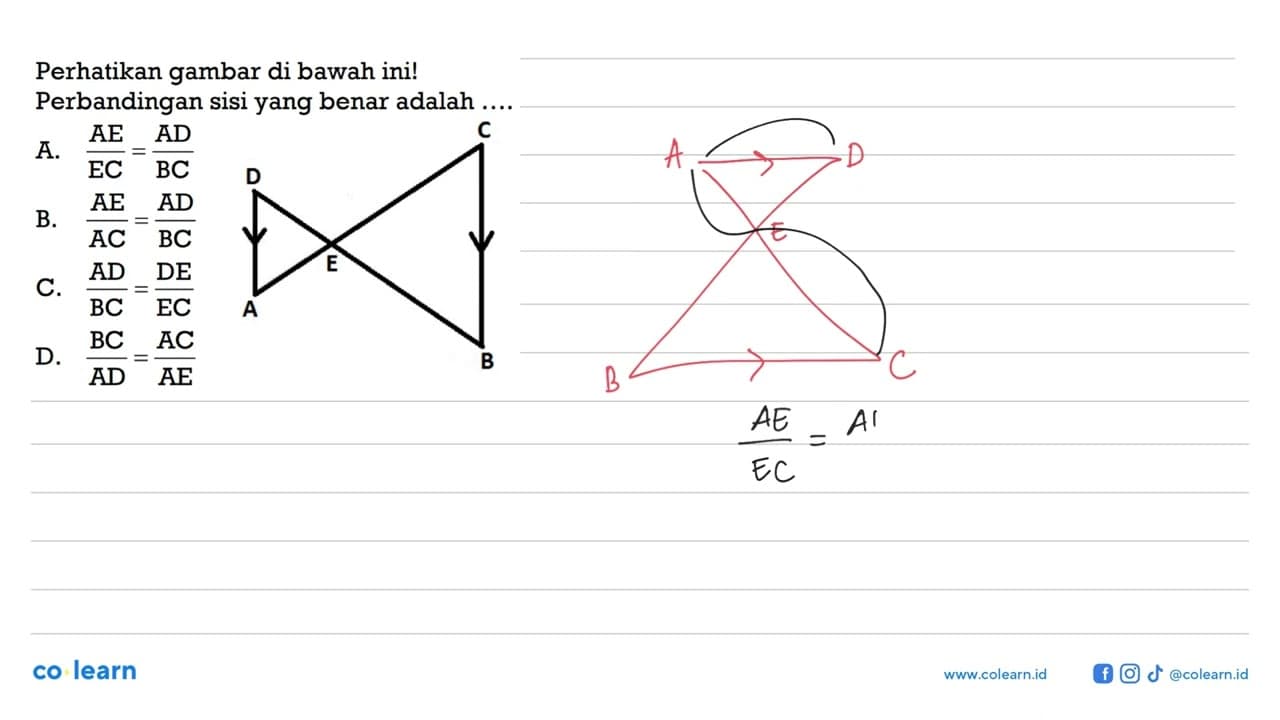 Perhatikan gambar di bawah ini!
Perbandingan sisi yang benar adalah ....
A. AE/EC = AD/BC
B. AE/AC = AD/BC
C. AD/BC = DE/EC
D. BC/AD = AC/AE
D
C
E
A
B
A
D
E
B
C
AE/EC = A
co learn
www.colearn.id
@colearn.id